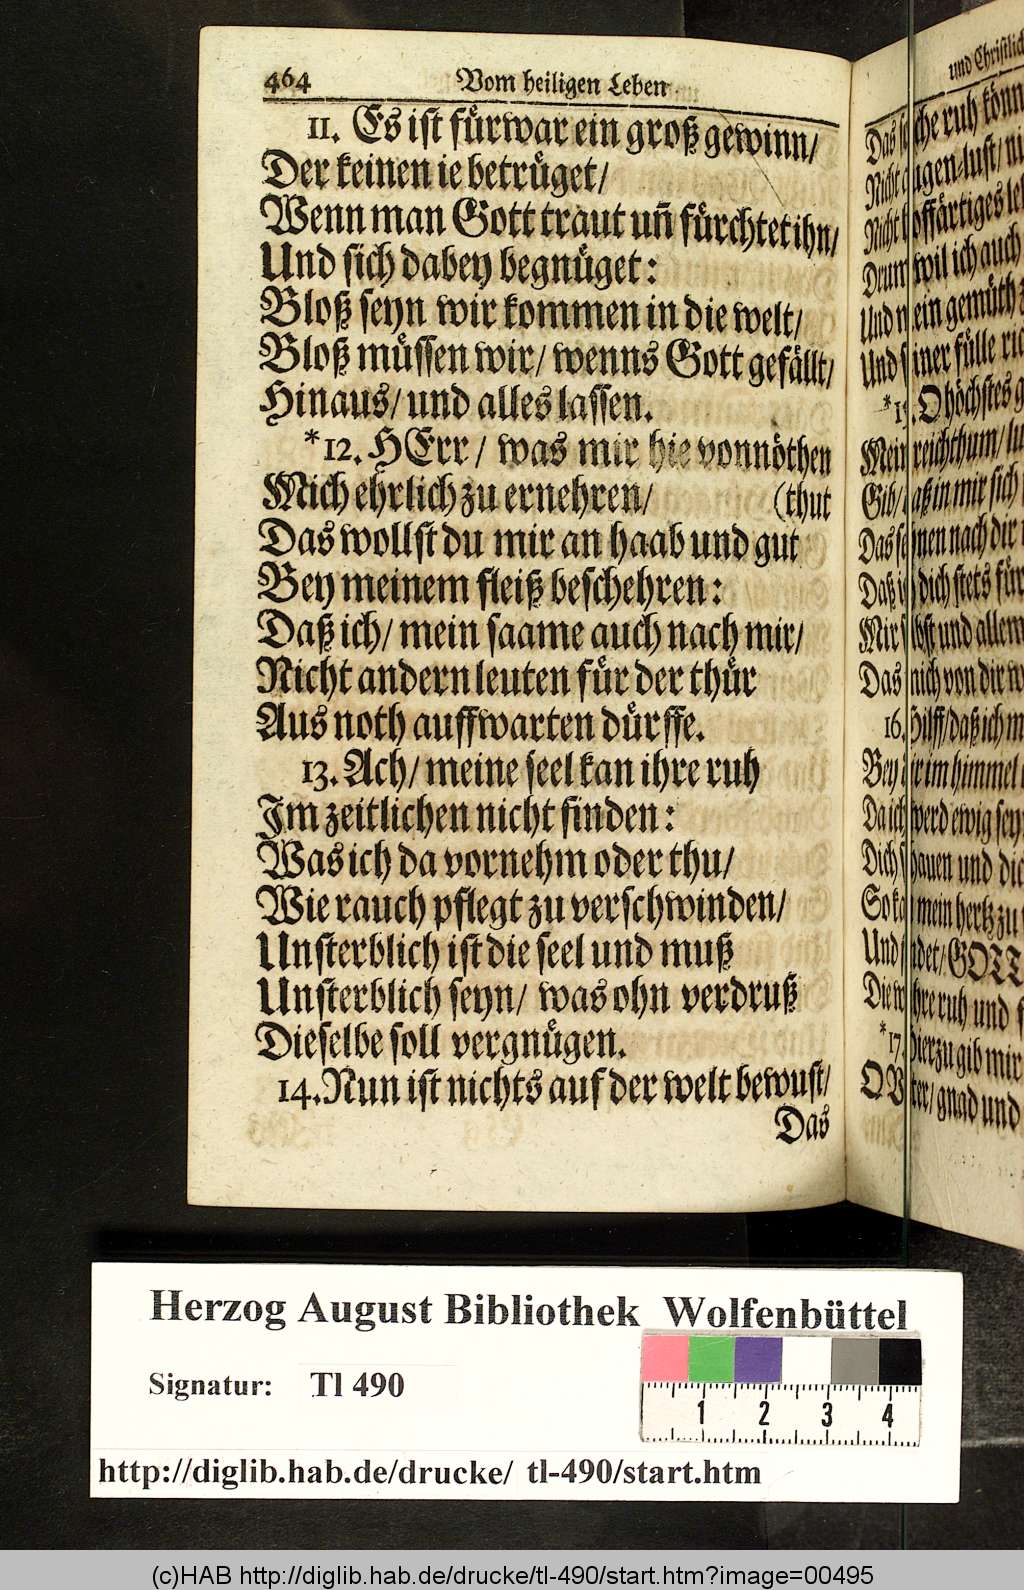 464 Vom heiligen Leben
11. Es ist fürwar ein groß gewinn/
Der keinen ie betrüget/
Wenn man Gott traut uñ fürchtet ihn/
Und sich dabey begnüget:
Bloß seyn wir kommen in die welt/
Bloß müssen wir/ wenns Gott gefällt/
Hinaus/ und alles lassen.
*12. HErr/ was mir hie vonnöthen
Mich ehrlich zu ernehren/ (thut
Das wollst du mir an haab und gut
Bey meinem fleiß beschehren:
Daß ich/ mein saame auch nach mir/
Nicht andern leuten für der thür
Aus noth auffwarten dürffe.
13. Ach/ meine seel kan ihre ruh
Im zeitlichen nicht finden:
Was ich da vornehm oder thu/
Wie rauch pflegt zu verschwinden/
Unsterblich ist die seel und muß
Unsterblich seyn/ was ohn verdruß
Dieselbe soll vergnügen.
14. Nun ist nichts auf der welt bewust/
Das
und Christlich
Das che ruh könn
Nicht agen-lust/ ni
Nicht hoffärtiges
Drum wil ich auch
Und mein gemüth
Und seiner fülle
*1 . O höchstes
Mein reichthum/
Gib/ daß in mir sich
Das sehnen nach dir
Daß ich dich stets für
Mir selbst und allem
Das mich von dir
16. Hilff/ daß ich
Bey dir im himmel
Da ich werd ewig seyn
Dich schauen und
So kan mein hertz zu
Und findet/ GOTT
Die ihre ruh und
*17. Hierzu gib mir
O Vater/ gnad und
Herzog August Bibliothek Wolfenbüttel
Signatur: Tl 490
1 2 3 4
http://diglib.hab.de/drucke/ tl-490/start.htm
(c)HAB http://diglib.hab.de/drucke/tl-490/start.htm?image=00495